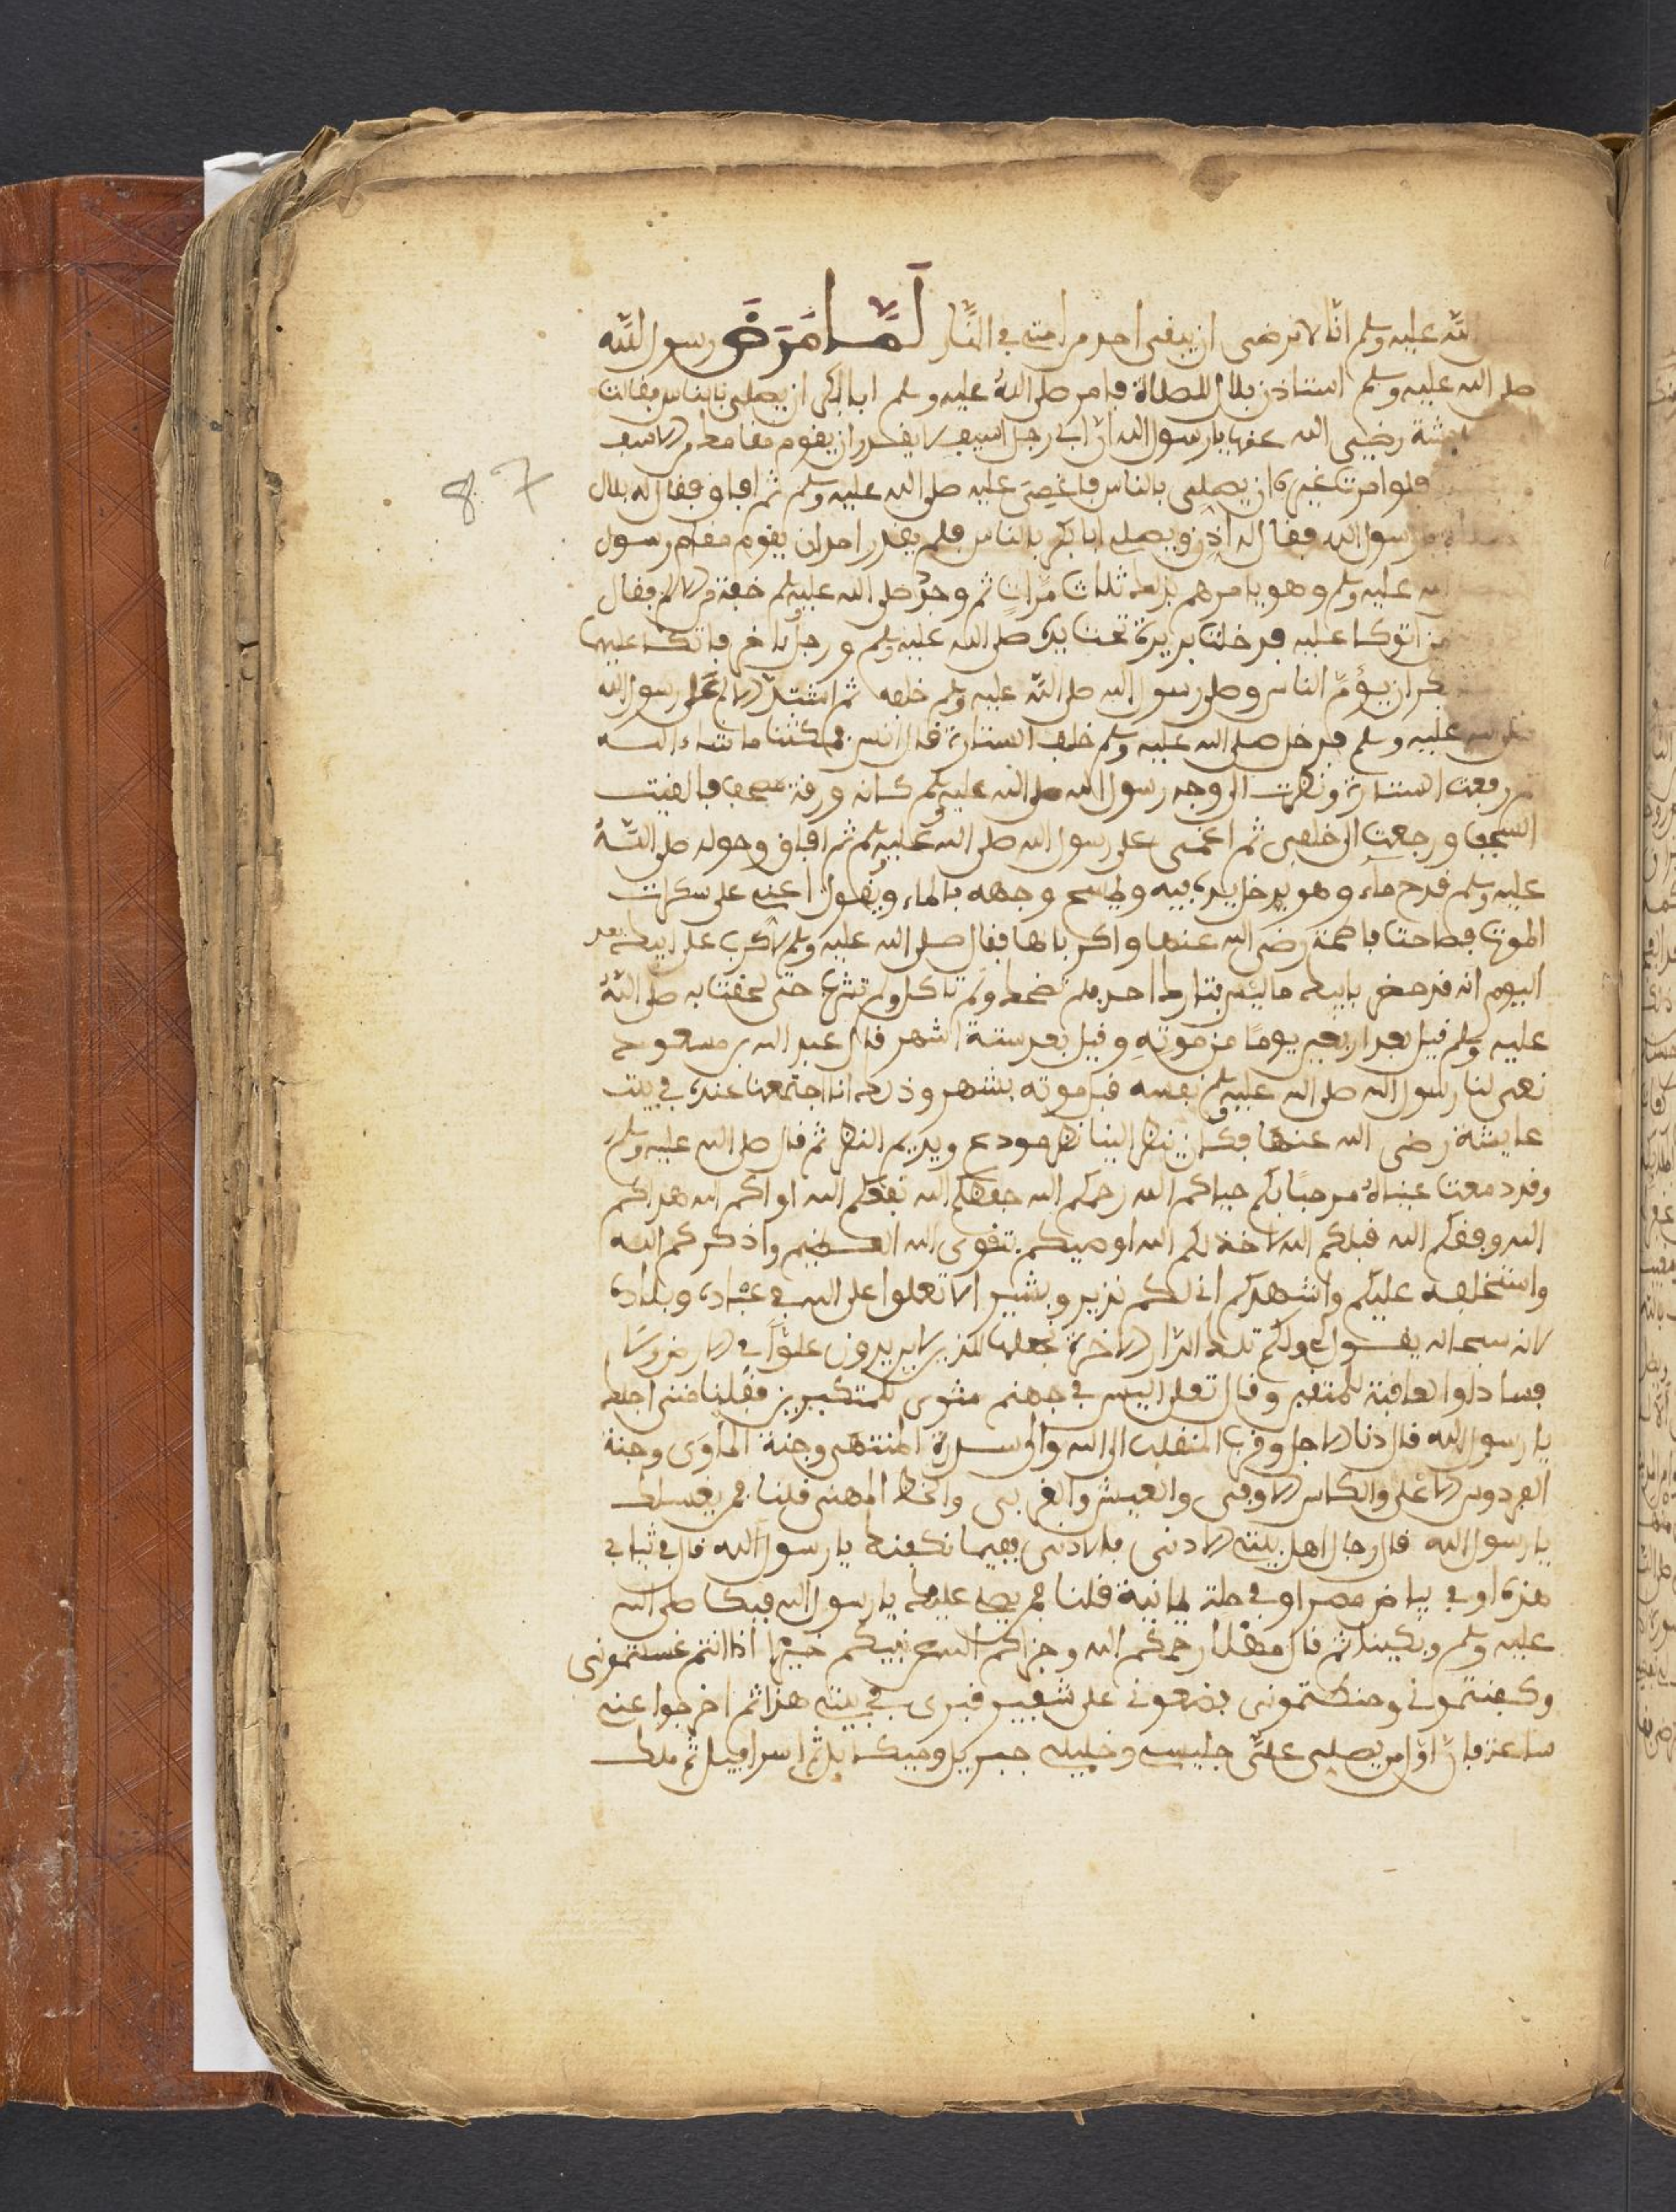 الله عليه وسلم انا لا نرضى ان يبقى احد من امته في النار لَمَّا مَرَضَ رسول الله
صلى الله عليه وسلم استاذن بلال للصلاة فامر صلى الله عليه وسلم ابا بكر ان يصلي بالناس فقالت
رضي الله عنها يا رسول الله ان ابي رجل اسيف لا يقدر ان يقوم مقامك
فلو امرت غيره ان يصلي بالناس فاغمي عليه صلى الله عليه وسلم ثم افاق فقال له بلال
رسول الله فقال له اذن ويصلي ابا بكر بالناس فلم يقدر احد ان يقوم مقام رسول
الله عليه وسلم وهو يامرهم بذلك ثلاث مرات ثم وجد صلى الله عليه وسلم خفة من الالم فقال
من اتوكا عليه فدخلت بريرة تحت يده صلى الله عليه وسلم ورجل اخر فاتكا عليهما
بكر ان يؤم الناس وصلى رسول الله صلى الله عليه وسلم خلفه ثم اشتد الالم على رسول الله
الله عليه وسلم فدخل صلى الله عليه وسلم خلف الستارة قال انس فمكثنا ما شاء الله
رفعت الستارة ونظرت الى وجه رسول الله صلى الله عليه وسلم كانه ورقة مصحف فالقيت
السجف ورجعت الى خلفي ثم اغمي على رسول الله صلى الله عليه وسلم ثم افاق وحوله صلى الله
عليه وسلم قدح ماء وهو يدخل يده فيه ويمسح وجهه بالماء ويقول اعني على سكرات
الموت فصاحت فاطمة رضي الله عنها واكرباها فقال صلى الله عليه وسلم لا كرب على ابيك بعد
اليوم انه قد حضر بابيك ما ليس بتارك احد فلم تضحك ولم تاكل ولم تشرب حتى لحقت به صلى الله
عليه وسلم قيل بعد اربعين يوما من موته وقيل بعد ستة اشهر قال عبد الله بن مسعود
نعى لنا رسول الله صلى الله عليه وسلم نفسه قبل موته بشهر وذلك انا اجتمعنا عنده في بيت
عايشة رضي الله عنها فكان ينظر الينا نظر مودع ويديم النظر ثم قال صلى الله عليه وسلم
وقد دمعت عيناه مرحبا بكم حياكم الله رحمكم الله حفظكم الله نفعكم الله اواكم الله هداكم
الله وفقكم الله قبلكم الله اوصيكم بتقوى الله العظيم واذكركم الله
واستخلفه عليكم واشهدكم اني لكم نذير وبشير الا تعلوا على الله في عباده وبلاده
لانه سبحانه يقول لي ولكم تلك الدار الاخرة نجعلها للذين لا يريدون علوا في الارض ولا
فسادا والعاقبة للمتقين وقال تعلى اليس في جهنم مثوى للمتكبرين فقلنا متى اجلك
يا رسول الله قال دنا الاجل وقرب المنقلب الى الله والى سدرة المنتهى وجنة الماوى وجنة
الفردوس الاعلى والكاس الاوفى والعيش والحظ المهنى قلنا فمن يغسلك
يا رسول الله قال رجال اهل بيتي الادنى فالادنى ففيما نكفنك يا رسول الله قال في ثيابي
هذه او في بياض مصر او في حلة يمانية قلنا فمن يصلي عليك يا رسول الله فبكا صلى الله
عليه وسلم وبكينا ثم قال مهلا رحمكم الله وجزاكم الله عن نبيكم خيرا اذا انتم غسلتموني
وكفنتموني وحنطتموني فضعوني على شفير قبري في بيتي هذا ثم اخرجوا عني
ساعة فان اول من يصلي علي جليسي وخليلي جبريل وميكايل ثم اسرافيل ثم ملك
87